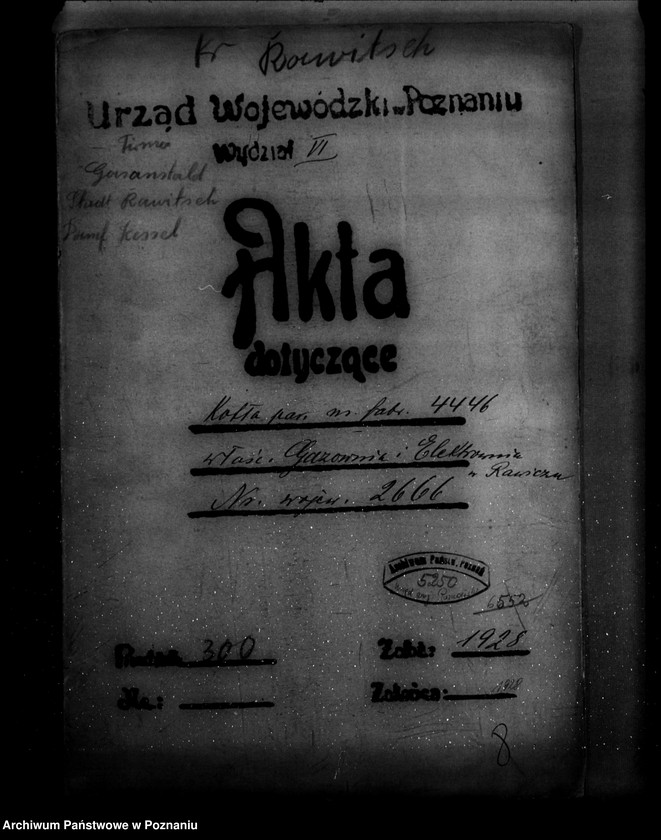 Kr Rawitsch
Urząd Wojewódzki w Poznaniu
Wydział VI
Firma
Gasanstald
Stadt Rawitsch
Dampf Kessel
Akta
dotyczące
Kotła par. nr. fabr. 4446
właśc. Gazownia i Elektrownia
w Rawiczu
Nr. wojew. 2666
Archiwum Państw. Poznań
5250
6552
300
Założ.: 1928
Zakończ.: 1928
8
Archiwum Państwowe w Poznaniu